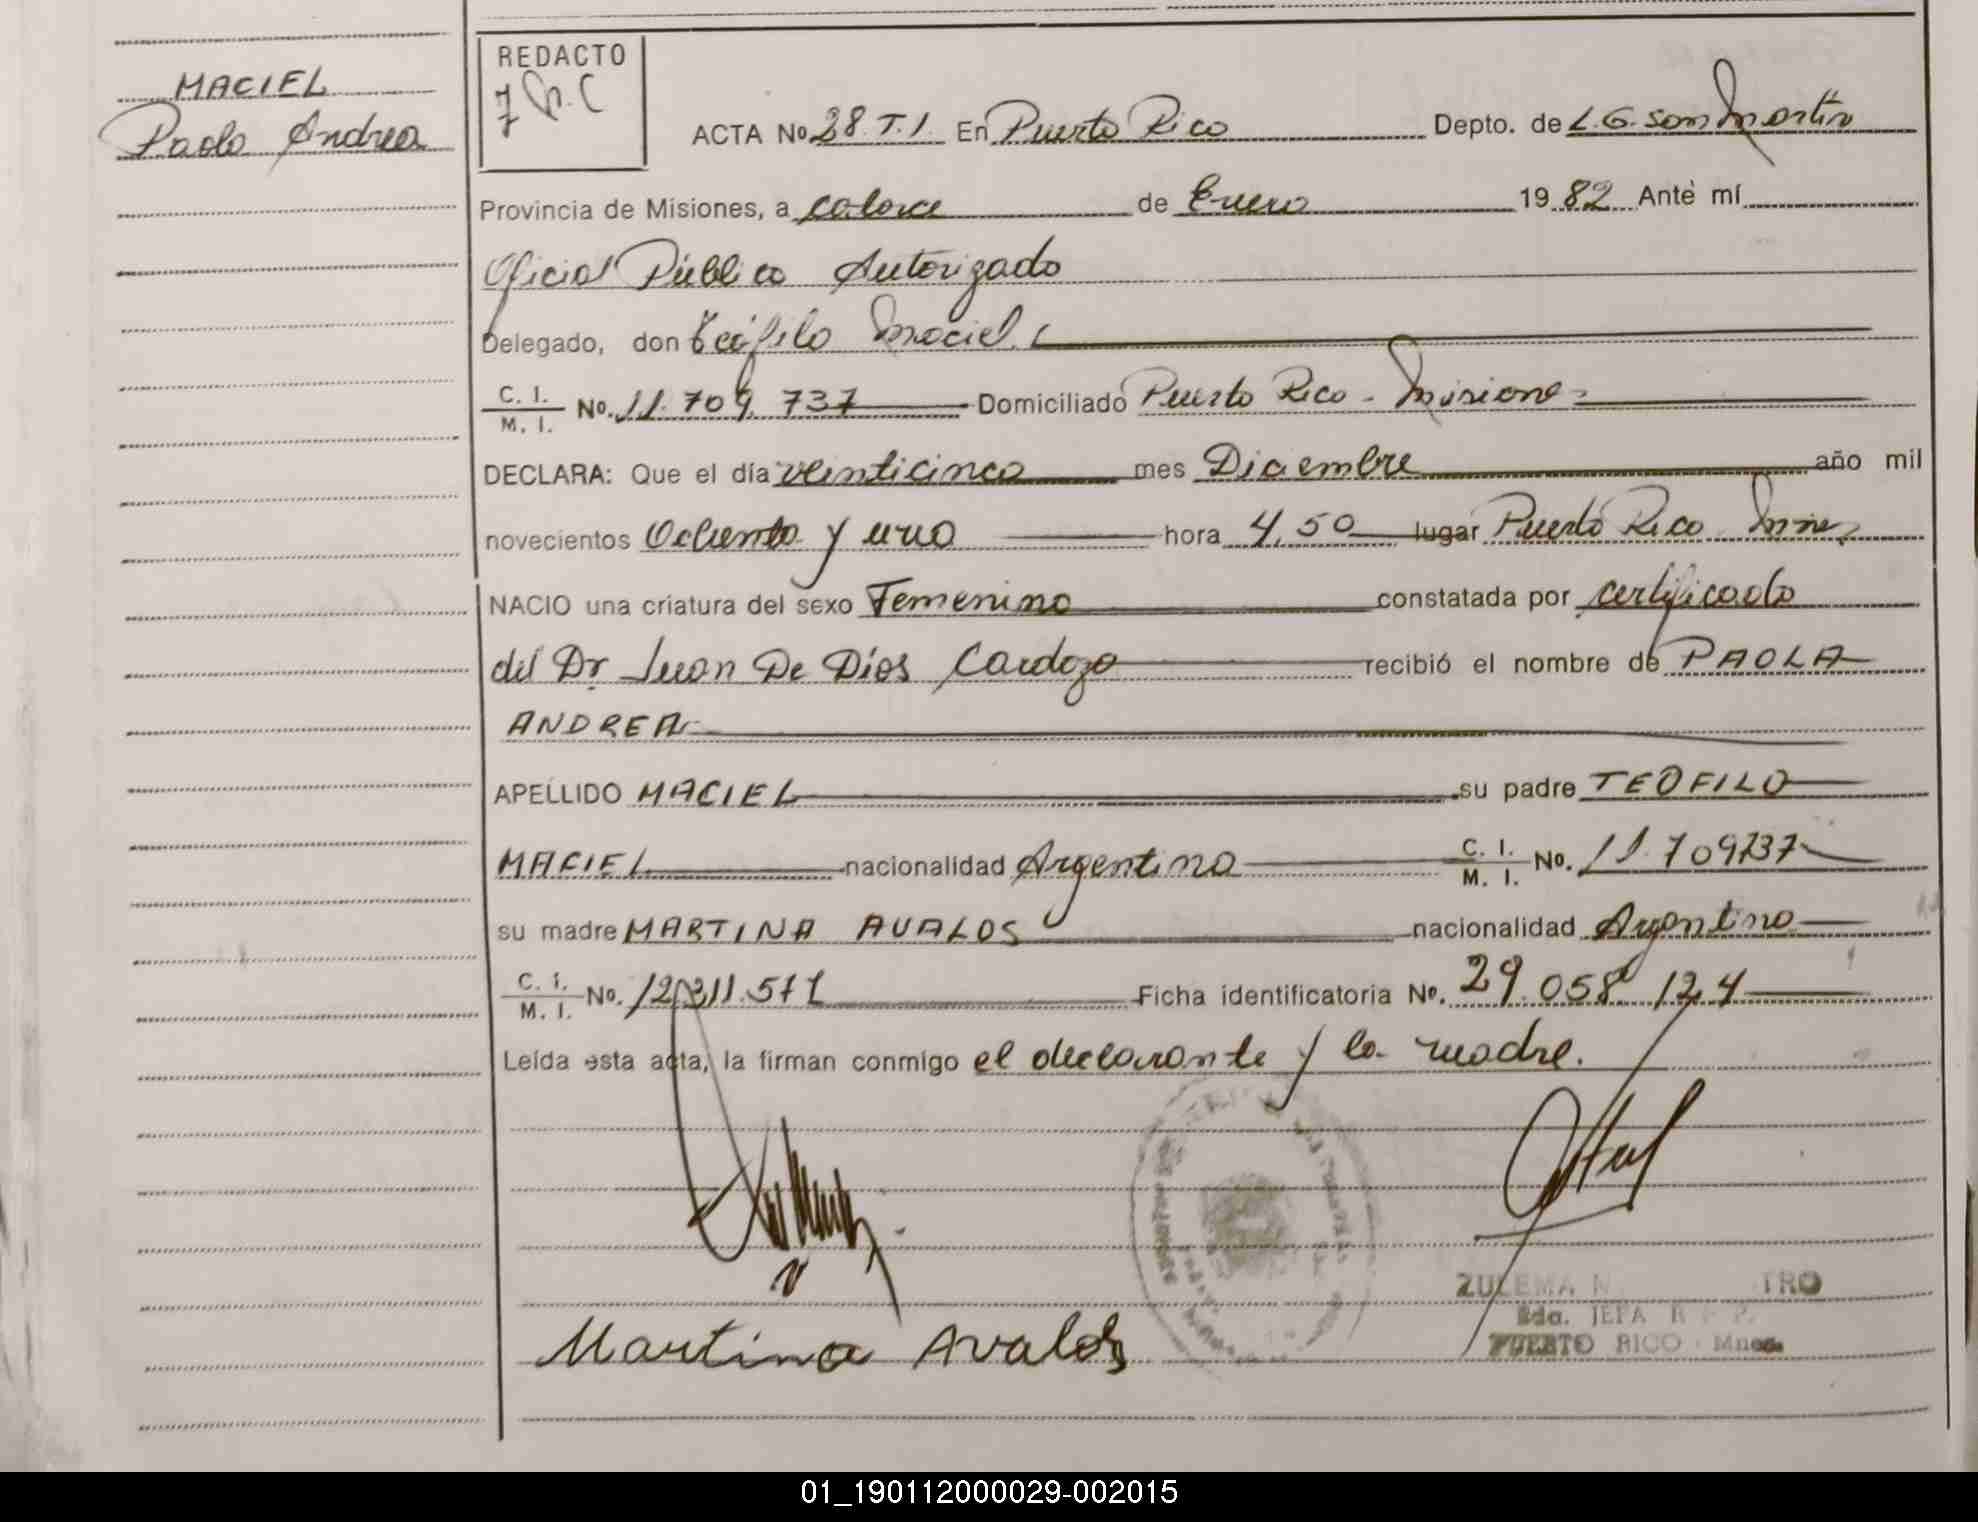 MACIEL
Paola Andrea
REDACTO
ACTA Nº 28.T.I. En Puerto Rico Depto. de L.G. San Martín
Provincia de Misiones, a catorce de Enero 19 82 Ante mí
Oficial Público Autorizado
Delegado, don Teófilo Maciel
C. I. / M. I. Nº. 11.709.737 Domiciliado Puerto Rico - Misiones
DECLARA: Que el día veinticinco mes Diciembre año mil
novecientos Ochenta y uno hora 4,50 lugar Puerto Rico Mnes
NACIO una criatura del sexo Femenino constatada por certificado
del Dr Juan De Dios Cardozo recibió el nombre de PAOLA
ANDREA
APELLIDO MACIEL su padre TEOFILO
MACIEL nacionalidad Argentina C. I. / M. I. Nº. 11.709737
su madre MARTINA AVALOS nacionalidad Argentina
C. I. / M. I. Nº. Ficha identificatoria Nº. 29.058.124
Leída esta acta, la firman conmigo el declarante y la madre.
ZULEMA
JEFA
PUERTO RICO - Mnes.
Martina Avalos
01_190112000029-002015